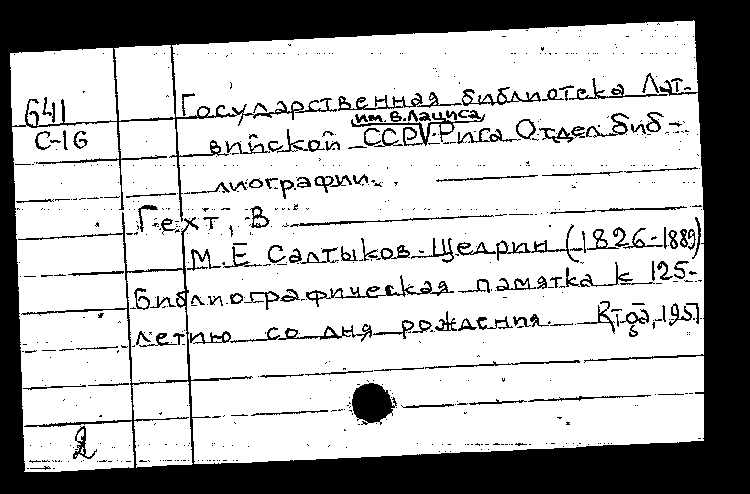 641
С-16
Государственная библиотека Лат-
им. В. Лациса
вийской ССР. Рига Отдел биб-
лиографии.
Гехт, В
М. Е Салтыков-Щедрин (1826-1889)
библиографическая памятка к 125-
летию со дня рождения.
1951
2